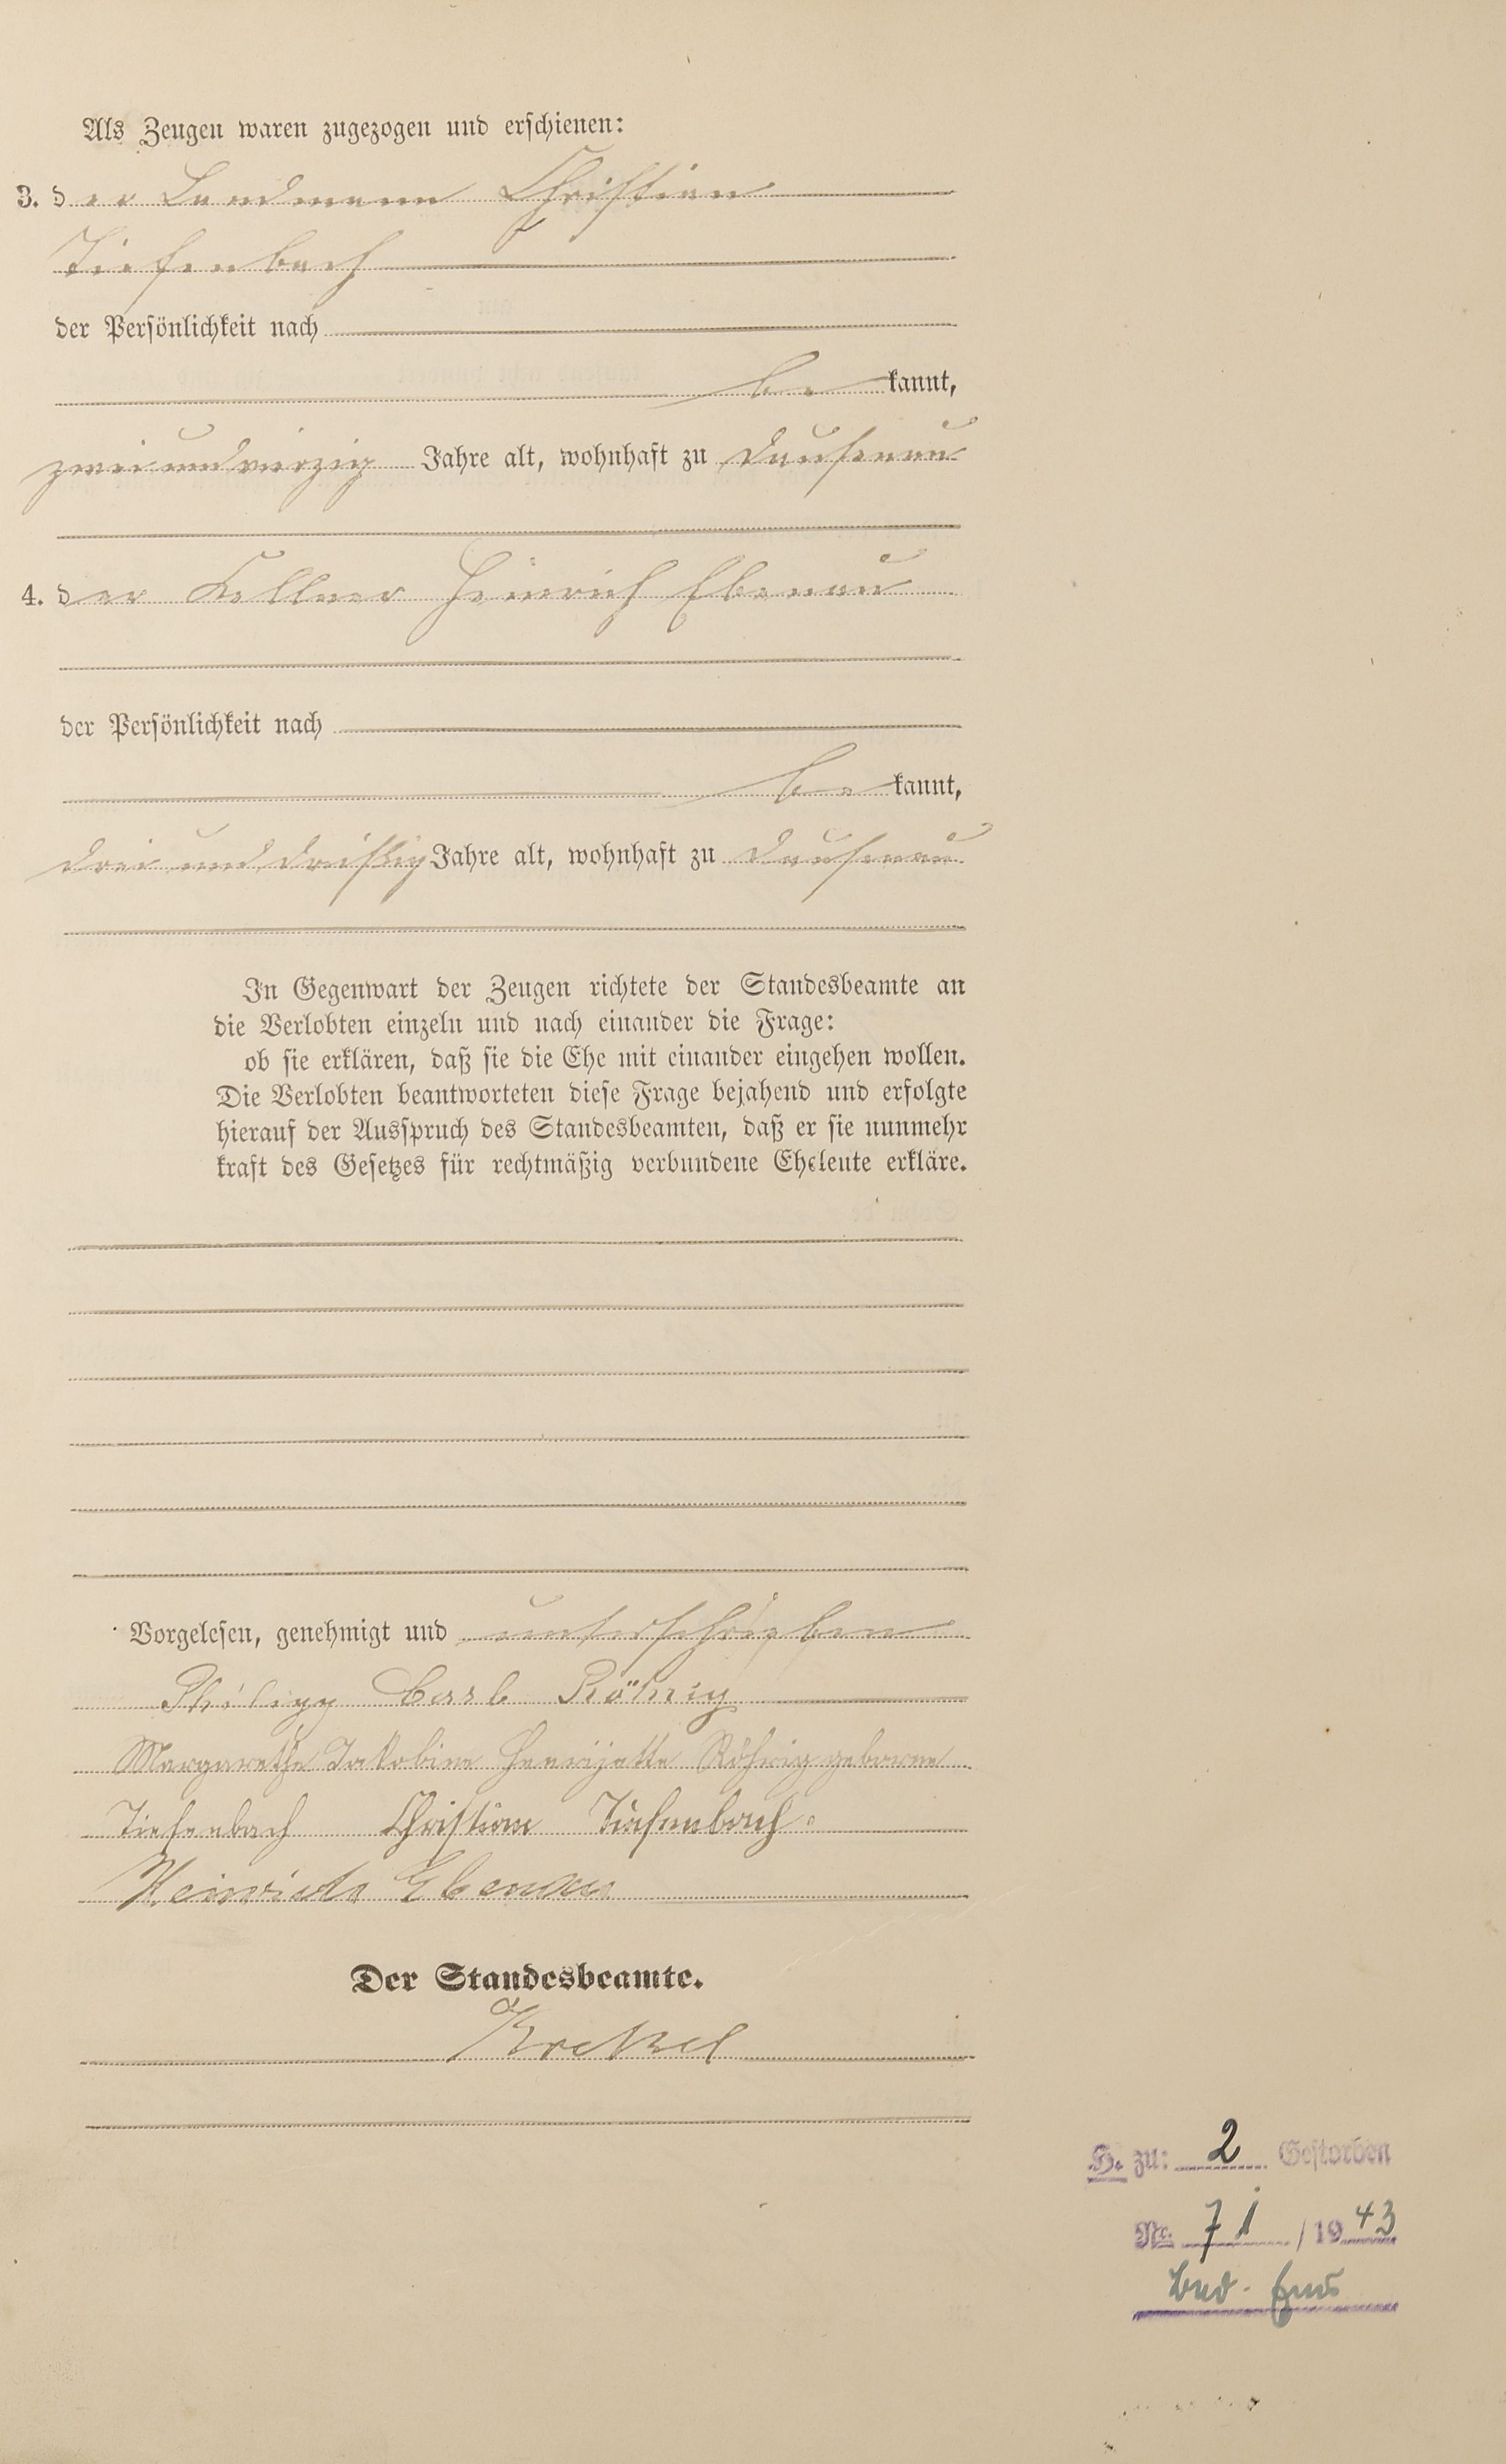 Als Zeugen waren zugezogen und erschienen:
3. der Landmann Christian
Tiefenbach
der Persönlichkeit nach
be kannt,
zweiundvierzig Jahre alt, wohnhaft zu Dausenau
4. der Kellner Heinrich Ebenau
der Persönlichkeit nach
be kannt,
drei und dreißig Jahre alt, wohnhaft zu Dausenau
In Gegenwart der Zeugen richtete der Standesbeamte an
die Verlobten einzeln und nach einander die Frage:
ob sie erklären, daß sie die Ehe mit einander eingehen wollen.
Die Verlobten beantworteten diese Frage bejahend und erfolgte
hierauf der Ausspruch des Standesbeamten, daß er sie nunmehr
kraft des Gesetzes für rechtmäßig verbundene Eheleute erkläre.
Vorgelesen, genehmigt und unterschrieben
Philipp Carl Röhrig
Margarethe Jakobine Henrijette Röhrig geborene
Tiefenbach Christian Tiefenbach
Heinrich Ebenau
Der Standesbeamte.
Krekel
H. zu: 2 Gestorben
Nr. 71 / 1943
Bad Ems